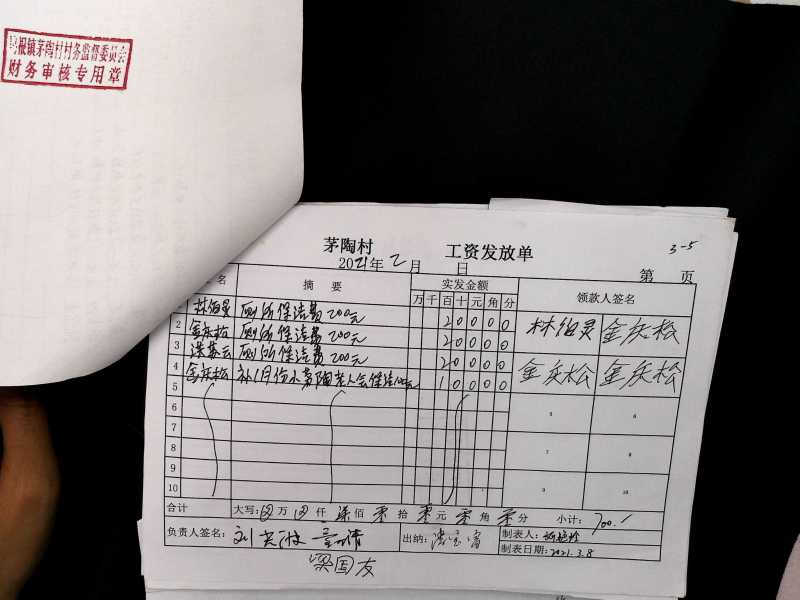 根镇茅陶村村务监督委员会
财务审核专用章
茅陶村 工资发放单 3-5
2021年2月 日 第 页
名 摘要 实发金额 领款人签名
万 千 百 十 元 角 分
林伯灵 厕所保洁费200元 20000 林伯灵 金庆松
2 金庆松 厕所保洁费200元 20000
3 厕所保洁费200元 20000 金庆松 金庆松
4 金庆松 补1月份小茅陶老人会保洁100元 10000
5
6 5 6
7
8 7 8
9
10 9 10
合计 大写:⊗万⊗仟柒佰零拾零元零角零分 小计:700.
负责人签名: 出纳: 制表人:
制表日期:2021.3.8
梁国友